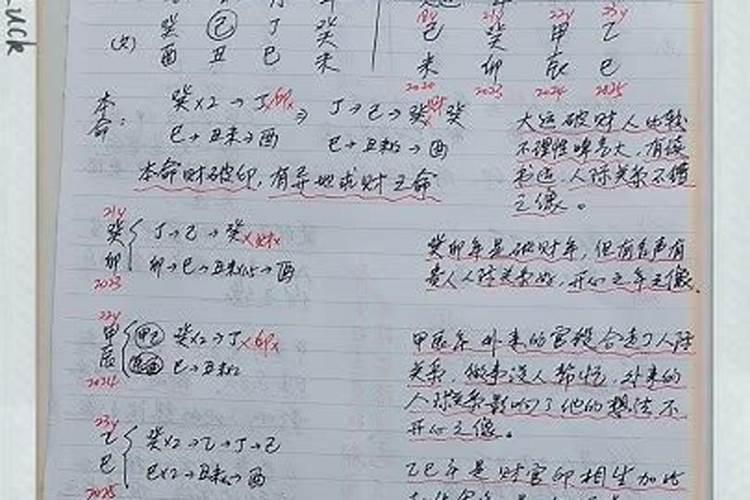 uck
癸 己 丁 癸
(女)
酉 丑 巳 未
18y 21y 22y 23y
己 癸 甲 乙
未 卯 辰 巳
2020 2023 2024 2025
本命:
癸x2→丁x印x ⇒ 丁→己→癸x财x 癸
巳→丑未→酉 巳→丑未x2→酉
本命财破印,有异地求财之命
大运破财人比较
不理性啤气大,有
人际关系不错
之像。
21y
癸卯
2023
丁→己→癸x财x
卯→巳→丑未x2→酉
癸卯年是破财年,但有名声有
贵人人际关系好,开心之年之像.
22y
甲辰
2024
甲己 癸x2→丁x印x
辰酉 巳→丑未x2
甲辰年外来的官杀合走了人际
关系,做事没人帮忙,外来的
人际关系影响了他的想法不
开心之像。
23y
乙巳
2025
癸x2→乙→丁→己
巳x2→丑未x2→酉
乙巳年是财官印相生加比